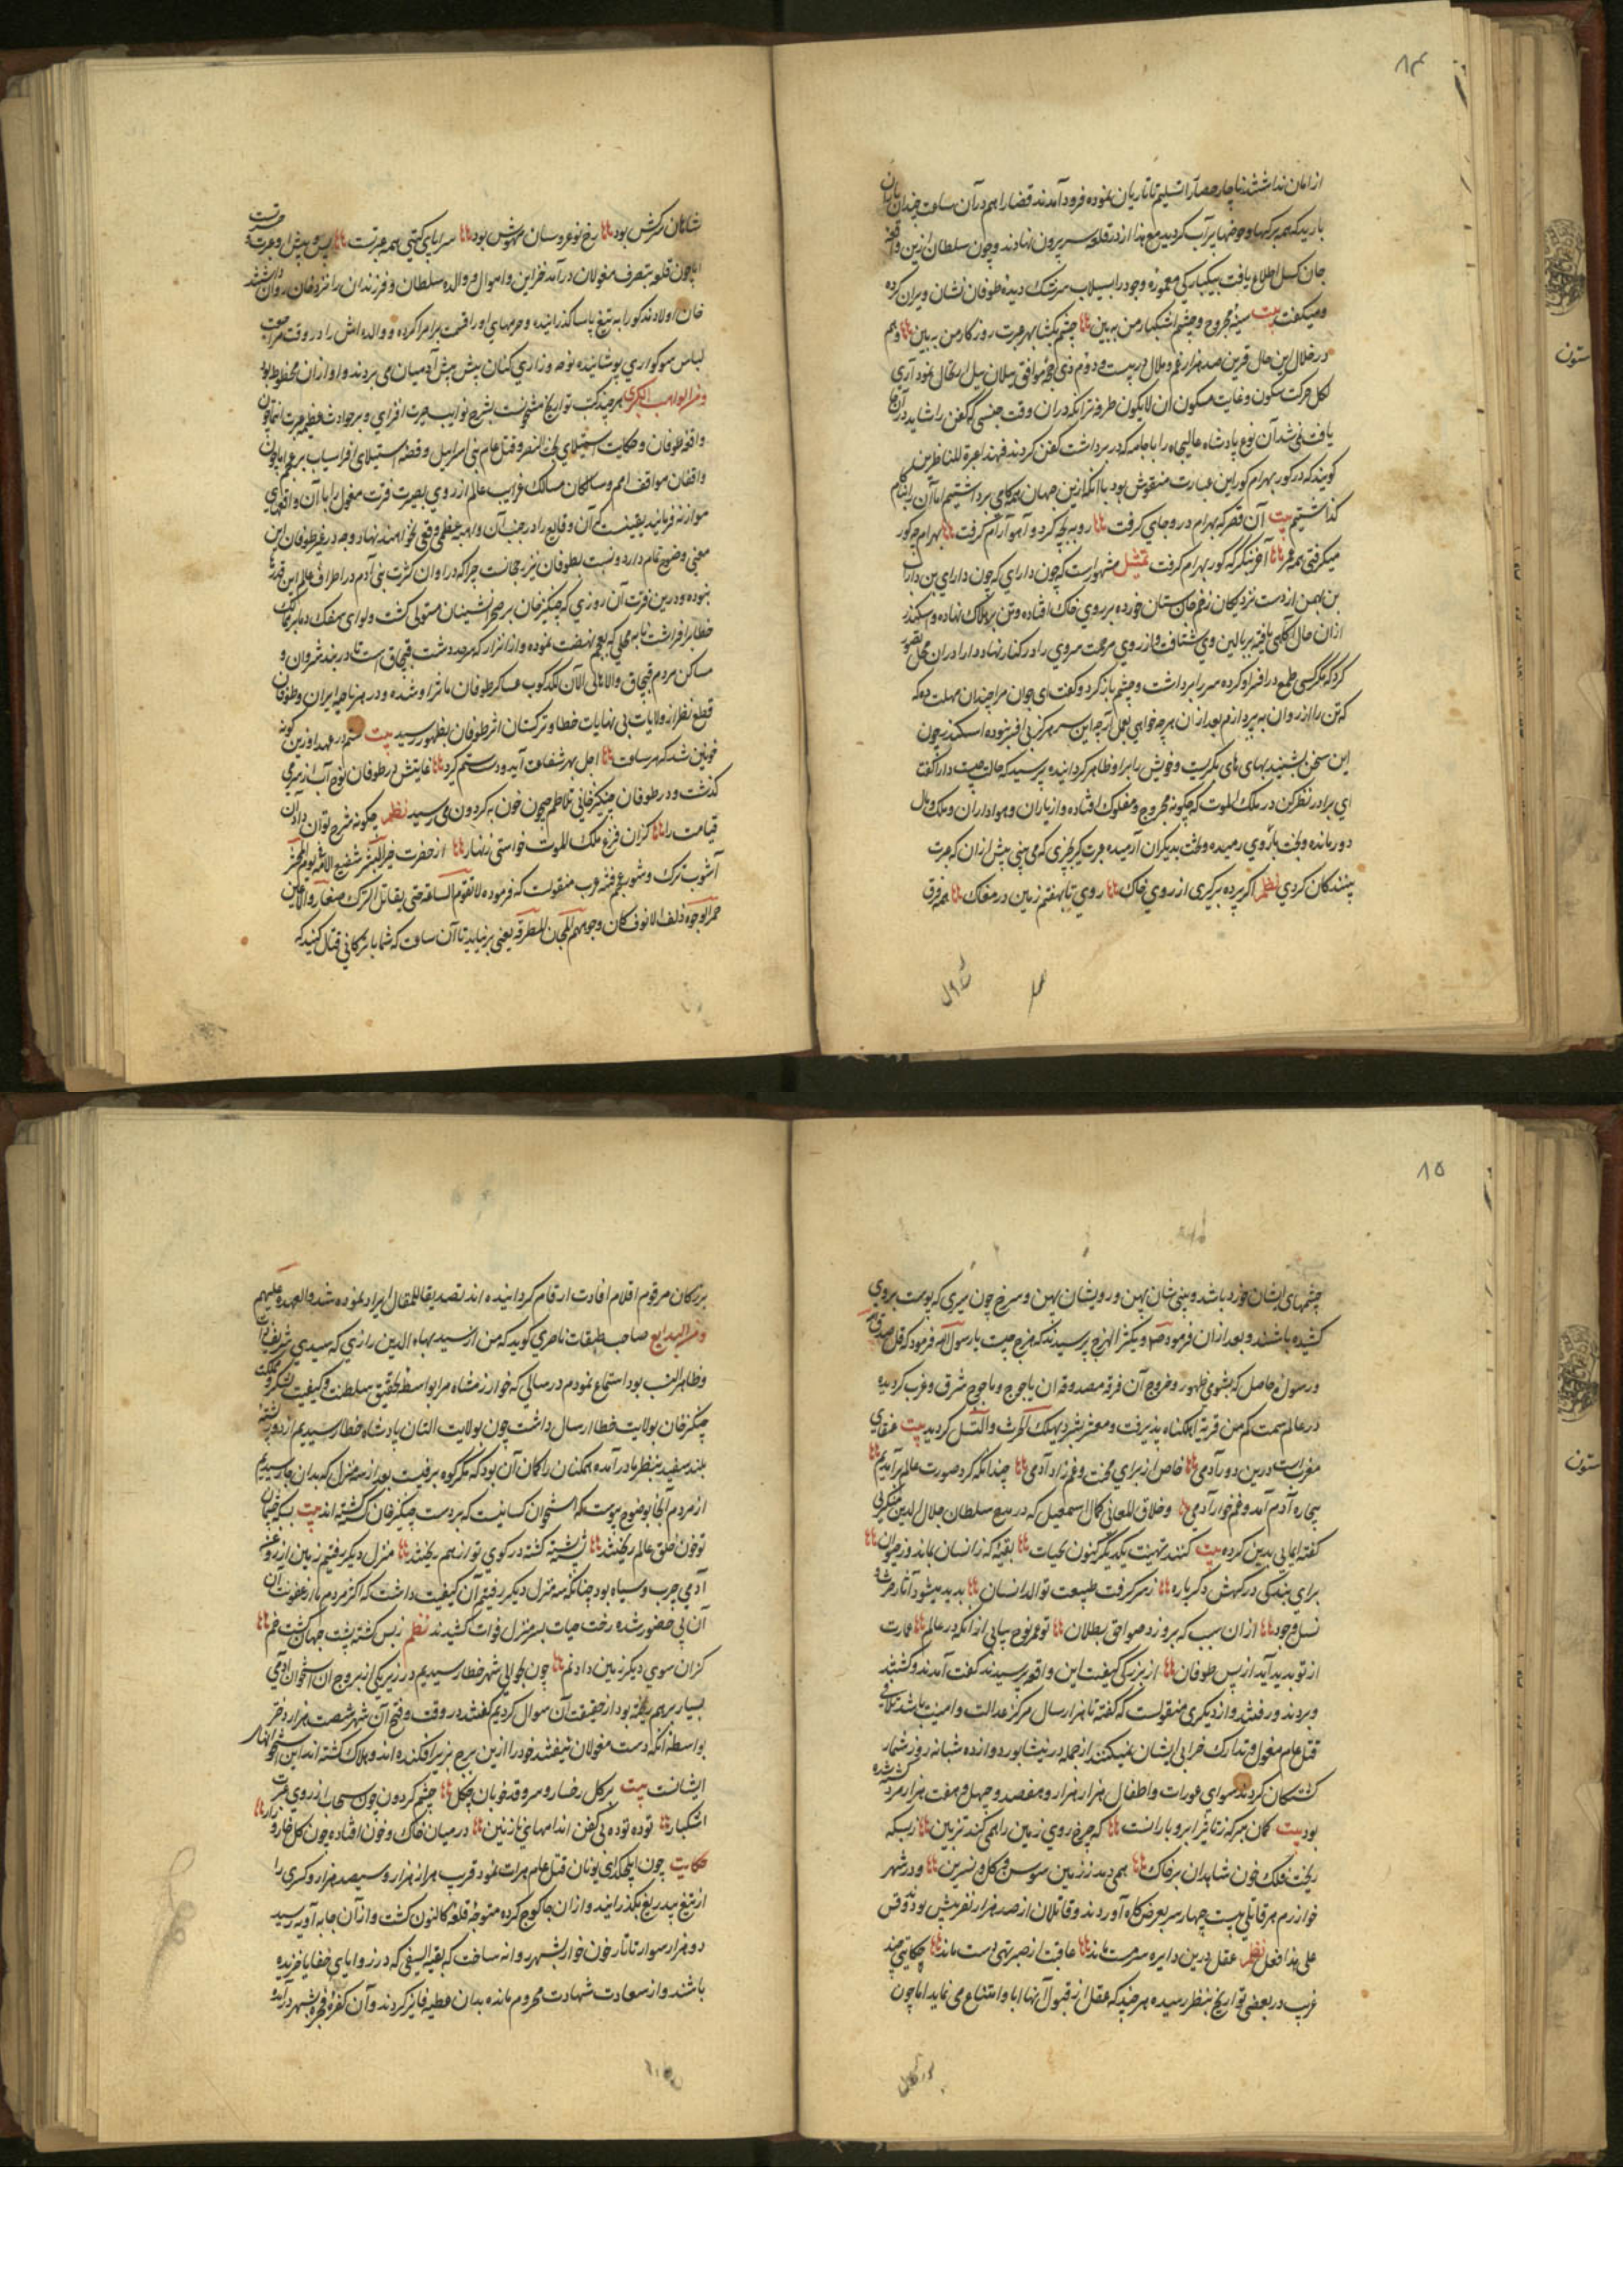 ۸۴
از امان نداشتند ناچار حصار را تسلیم تاتاریان نموده فرود آمدند قضا را هم در آن ساعت چندان باران
بارید که همه برکها و حوضها پر آب کردید مع هذا از در قلعه سر بیرون نهادند و چون سلطان ازین واقعه
جان کسل اطلاع یافت بیکبارکی معموره وجود را بسیلاب سرشک دیده طوفان نشان ویران کرده
و میکفت بیت سینه مجروح و چشم اشکبار من به بین چشم بکشا بهر عبرت روزکار من به بین و هم
در خلال این حال قرین صد هزار غم و ملال در بیست و دوم ذی حجه موافق ییلان ییل ارتحال نمود آری
لکل حرکت سکون و غایت مسکون ان لا یکون طرفه تر آنکه در ان وقت جنسی که کفن را شاید در آنجا
یافت نمی شد آن نوع پادشاه عالیجاه را با جامه که در بر داشت کفن کردند فهذا عبرة للناظرین
کویند که در کور بهرام کور این عبارت منقوش بود با آنکه ازین جهان همه کامی برداشتیم اما آن را بناکام
کذاشتیم بیت آن قصر که بهرام درو جای کرفت روبه بچه کرد و آهو آرام کرفت بهرام چو کور
میکرفتی همه عمر آخر بنکر که کور بهرام کرفت تمثیل مشهور است که چون دارای که چون دارای بن داراب
بن بهمن از دست نزدیکان زخم جان ستان خورده بر روی خاک افتاده و تن بر هلاک نهاده و سکندر
ازان حال آکاهی یافته ببالین وی شتافت و از روی مرحمت سر وی را در کنار نهاد دارا دران محل تصور
کرد که مکر کسی طمع در افسر او کرده سر را برداشت و چشم باز کرد و کفت ای جوان مرا چندان مهلت ده که
که تن را از روان به پردازم بعد ازان هر چه خواهی بعمل آر چه این سر هرکز بی افسر نبوده اسکندر چون
این سخن بشنید بهای های بکریست و خویش را برو ظاهر کردانیده پرسید که حالت چیست دارا کفت
ای برادر نظر کن در ملک الموت که چکونه مجروح و مفلوک افتاده و از یاران و هواداران و ملک و مال
دور مانده و بخت باز وی رمیده و تخت بدیکران آرمیده عبرت کیر بچیزی که می بینی پیش ازان که عبرت
بینندکان کردی نظم اکر پرده بر کیری از روی خاک روی تا بهفتم زمین در مغاک همه فرق
شاهان سرکش بود رخ نو عروسان مهوش بود سراپای کیتی همه عبرتست پس و پیش او عبرت و حیرتست
اما چون قلعه بتصرف مغولان درآمد خزاین و اموال و والده سلطان و فرزندان را نزد خان روان داشتند
خان اولاد مذکور را به تیغ یاسا کذرانیده و حرمهای او را قسمت بر امرا کرده و والده اش را در وقت مراجعت
لباس سوکواری پوشانیده نوحه و زاری کنان پیش پیش آدمیان می بردند و او ازان محظوظ بود
و من النوایب الکبری هر چند کتب تواریخ مشحونست بشرح نوایب حیرت افزای و بر حوادث عظیم عبرت انتما چون
واقعه طوفان و حکایت استیلای بخت النصر و قتل عام بنی اسراییل و قصه استیلای افراسیاب بر عجم اما چون
واقفان مواقف امم و سالکان مسالک غرایب عالم از روی بصیرت فترت مغول را با آن واقعهای
موازنه فرمایند یقینست که آن وقایع را در جنب آن داهیه عظمی وقعی نخواهند نهاد و چه در غیر طوفان این
معنی وضوح تمام دارد و نسبت بطوفان نیز بجانست چرا که در اوان کثرت بنی آدم در اطراف عالم این قدرها
نبوده و درین فترت آن روزی که چنکیز خان بر صحرا نشینان مستولی کشت و لوای سفک دما بر ممالک
خطا بر افراشت تا به محلی که بعجم نهضت نموده و از اترار که سرحد دشت قبچاق است تا دربند شروان و
مساکن مردم قبچاق و الالان لکدکوب عساکر طوفان ماثر او شده و در هر ناحیه ایران و طوفان
قطع نظر از ولایات بی نهایات خطا و ترکستان اثر طوفان بظهور رسید بیت ستم در عهد او زین کونه
خونین شد که هر ساعت اجل بهر شفاعت آید و دستم کیرد غایتش در طوفان نوح آب از سر می
کذشت و در طوفان چنکیز خانی تلاطم جیحون خون به کردون می رسید نظم چکونه شرح توان داد آن
قیامت را کزان فزع ملک الموت خواستی زنهار از حضرت خیر البشر شفیع الامه یوم المحشر
آشوب ترک و شور عجم فتنه عرب منقولست که فرموده لا تقوم الساعة حتی یقاتل الترک صغار الاعین
حمر الوجوه ذلف الانوف کان وجوههم المجان المطرقة یعنی بر نیاید تا آن ساعت که شما با ترکانی قتال کنید که
۸۵
چشمهای ایشان خورد باشد و بینی شان پهن و رویشان پهن و سرخ چون سپری که پوست بر روی
کشیده باشند و بعد ازان فرمود صم و یکثر الهرج پرسیدند که هرج چیست یا رسول الله فرمود که قتل صدق الله
و رسوله حاصل که بشومی ظهور و خروج آن فرقه مصدوقه ان یاجوج و ماجوج شرق و غرب کردیده
در عالم سمت کم من قریة اهلکناه پذیرفت و معشر بشر به یهلک الحرث و النسل کردید بیت عنقای
مغرب است درین دور آدمی خاص از برای محنت و غم زاد آدمی چندانکه کرد صورت عالم برآمدیم
بیچاره آدم آمد و غم خوار آدمی و خلاق المعانی کمال اسمعیل که در مدح سلطان جلال الدین منکبرنی
کفته ایمایی بدین کرده بیت کنند تهنیت یکدیکر کنون بحیات بقیه که ز انسان بماند و ز حیوان
برای بندکی درکهش دکر باره ز سر کرفت طبیعت توالد انسان پدید میشود آثار حرث و
نسل وجود ازان سبب که بروزد صواعق بطلان تو عمر نوح بیابی از آنکه در عالم عمارت
از تو پدید آید از پس طوفان از بزرکی کیفیت این واقعه پرسیدند کفت آمدند و کشتند
و بردند و رفتند و از دیکری منقولست که کفته تا هزار سال مرکز عدالت و امنیت باشد تلافی
قتل عام مغول و تدارک خرابی ایشان نمیکنند از جمله در نیشابور دوازده شبانه روز شمار
کشتکان کردند سوای عورات و اطفال هزار هزار و هفصد و چهل و هفت هزار مرد کشته شده
بود بیت کمان مبر که ز تاثیر ابر و بارانست که چرخ روی زمین را همی کند تزیین ز بسکه
ریخت فلک خون شاهدان بر خاک همی دمد ز زمین سوسن و کل و نسرین و در شهر
خوارزم هر قاتلی بیست چهار سر بعرض کاه آوردند و قاتلان از صد هزار نفر بیش بودند و قس
علی هذا فعل نظم عقل درین دایره سرمست ماند عاقبت از صبر تهی دست ماند حکایتی چند
غریب در بعضی تواریخ بنظر رسیده هر چند که عقل از قبول آنها ابا و امتناع می نماید اما چون
بزرکان مرقوم اقلام افادت ارقام کردانیده اند تصدیقا للمقال ایراد نموده شد و العهدة علیهم
و من البدایع صاحب طبقات ناصری کوید که من از سید بهاء الدین رازی که سیدی شریف ذات
و ظاهر النسب بود استماع نمودم در سالی که خوارزمشاه مرا بواسطه تحقیق سلطنت و کیفیت لشکر و مملکت
چنکیز خان بولایت خطا ارسال داشت چون بولایت التان پادشاه خطا رسیدیم از دور پشته
بلند سفید بنظر ما درآمده همکنان را کمان آن بود که مکر کوه برفیست بعد از سه منزل که بدان جا رسیدیم
از مردم آنجا بوضوح پیوست که استخوان کسانیست که بر دست چنکیز خان کشته اند بیت بسکه چشمان
تو خون خلق عالم ریختند پشته پشته کشته در کوی تو از هم ریختند منزل دیکر رفتیم زمین از روغن
آدمی چرب و سیاه بود چنانکه سه منزل دیکر رفتیم آن کیفیت داشت که اکثر مردم ما از عفونت آن
آن بی حضور شده رخت حیات بسر منزل فوات کشیدند نظم ز بس کشته پشت جهان کشت خم
کزان سوی دیکر زمین داد نم چون بحوالی شهر خطا رسیدیم در زیر یکی از بروج ان استخوان آدمی
بسیار بر هم ریخته بود از حقیقت آن سوال کردیم کفتند در وقت فتح آن شهر شصت هزار دختر
بواسطه آنکه دست مغولان نیفتند خود را ازین برج بزیر افکنده اند و هلاک کشته اند این استخوانهای
ایشانست بیت بر کل رخسار و سرو قد خوبان چکل چشم کردون چون سحاب از روی عبرت
اشکبار توده توده بی کفن اندامهای نازنین در میان خاک و خون افتاده چون کل خار و زار
حکایت چون ایلچیکدای نویان قتل عام هرات نمود قریب هزار هزار و سیصد هزار و کسری را
از تیغ بیدریغ بکذرانیدند و ازان جا کوچ کرده متوجه قلعه کالنون کشت و از آن جا به آوبه رسید
دو هزار سوار تاتار خون خوار بشهر روانه ساخت که بقیه السیفی که در زوایای خفایا خزیده
باشند و از سعادت شهادت محروم مانده بدان عطیه فایز کردند و آن کفره فجره بشهر درآمده
ستون
ستون